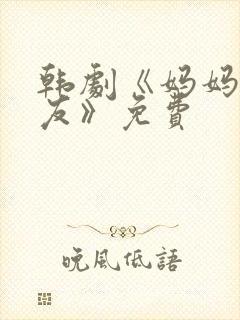 韩劇《妈妈
友》免費
晚風低語